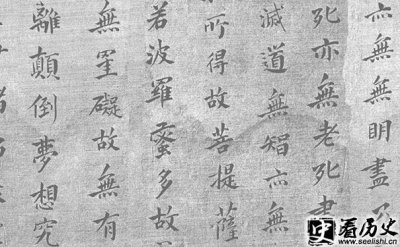 亦無無明盡乃
死亦無老死盡
滅道無智亦無
所得故菩提薩
若波羅蜜多故
無罣礙故無有
離顛倒夢想究
看历史
www.seelishi.cn